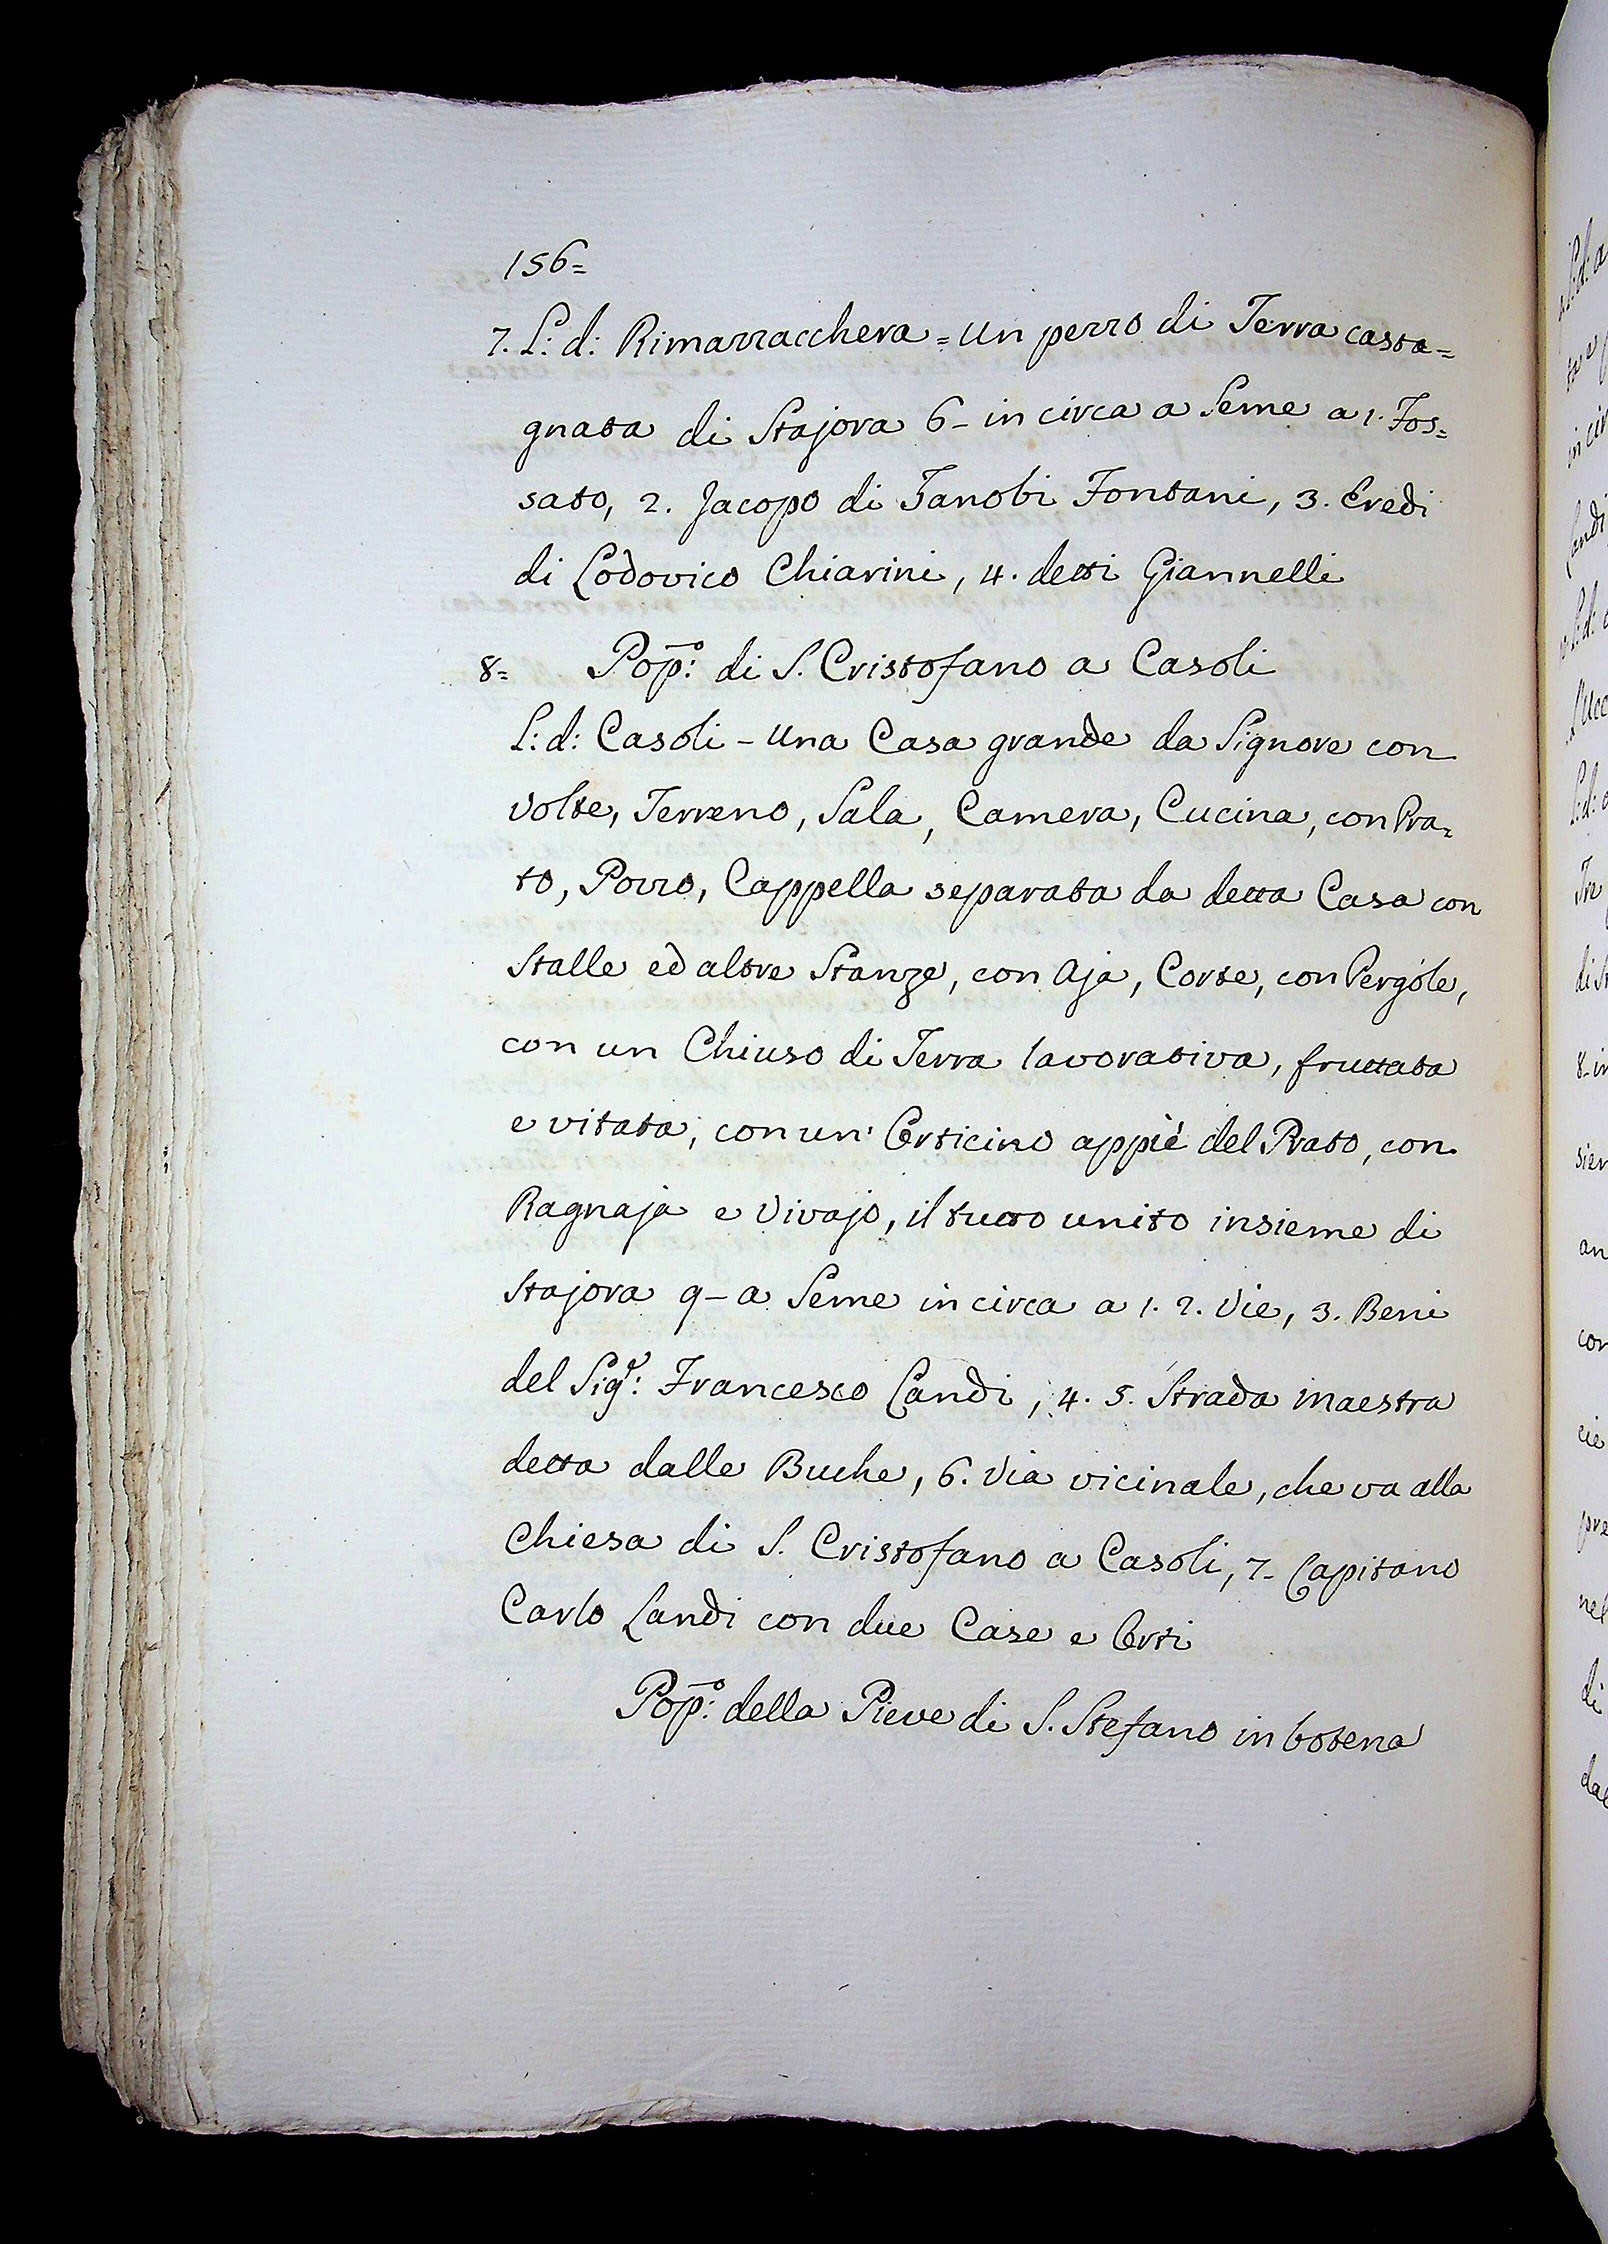 156=
7. L: d: Rimazzacchera = un pezzo di Terra casta=
gnata di Stajora 6 - in circa a Seme a 1. Fos=
sato, 2. Jacopo di Zanobi Fontani, 3. Eredi
di Lodovico Chiarini, 4. detti Giannelli
8= Pop.o: di S. Cristofano a Casoli
L: d: Casoli - una Casa grande da Signore con
volte, Terreno, Sala, Camera, Cucina, con Pra=
to, Pozzo, Cappella separata da detta Casa con
Stalle ed altre Stanze, con Aja, Corte, con Pergole,
con un Chiuso di Terra lavorativa, fruttata
e vitata, con un' Orticino appiè del Prato, con
Ragnaja e Vivajo, il tutto unito insieme di
Stajora 9 - a Seme in circa a 1. 2. Vie, 3. Beni
del Sig.r: Francesco Landi, 4. 5. Strada maestra
detta dalle Buche, 6. Via vicinale, che va alla
Chiesa di S. Cristofano a Casoli, 7 - Capitano
Carlo Landi con due Case e Orti
Pop.o: della Pieve di S. Stefano in botena